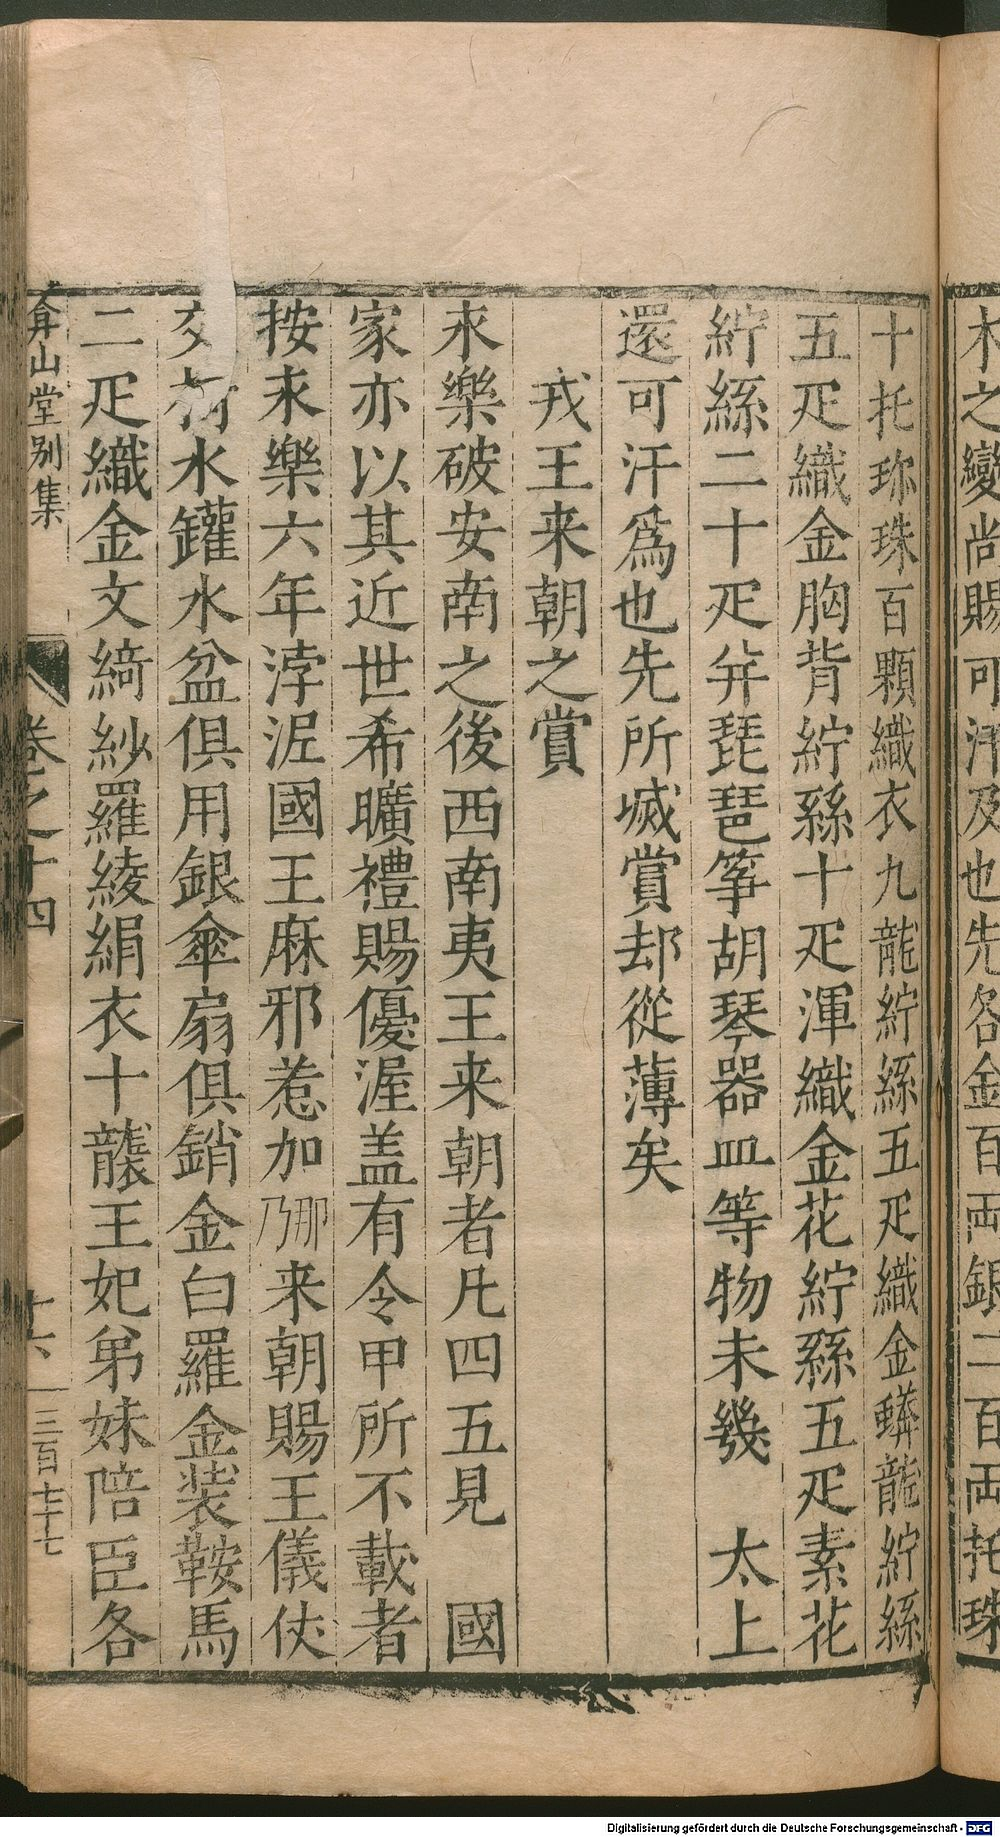 木之變尚賜可汗及也先各金百両銀二百両托珠
十托珎珠百顆織衣九龍紵絲五疋織金蟒龍紵絲
五疋織金胸背紵絲十疋渾織金花紵絲五疋素花
紵絲二十疋并琵琶箏胡琴器皿等物未幾　太上
還可汗爲也先所㓕賞却從薄矣
戎王来朝之賞
永樂破安南之後西南夷王来朝者凡四五見　國
家亦以其近世希曠禮賜優渥盖有令甲所不載者
按永樂六年浡泥國王麻邪惹加那乃来朝賜王儀仗
交椅水罐水盆俱用銀傘扇俱銷金白羅金装鞍馬
二疋織金文綺紗羅綾絹衣十襲王妃弟妹陪臣各
弇山堂别集
卷之十四
十六
三百七十七
Digitalisierung gefördert durch die Deutsche Forschungsgemeinschaft - DFG